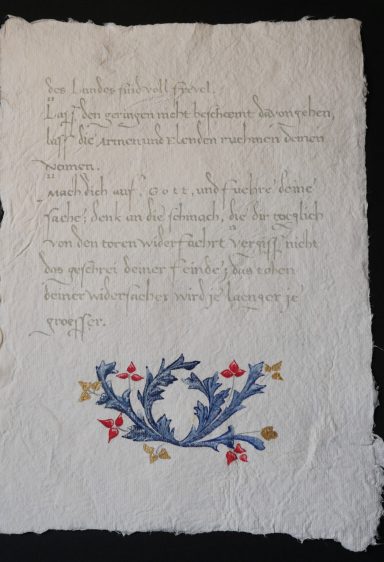 des Landes sind voll frevel.
21 Lass den geringen nicht beschaemt davongehen,
lass die Armen und Elenden ruehmen deinen
Namen.
22 Mach dich auf, Gott, und fuehre deine
sache; denk an die schmach, die dir taeglich
von den toren widerfaehrt 23 Vergiss nicht
das geschrei deiner feinde; das toben
deiner widersacher wird je laenger je
groesser.